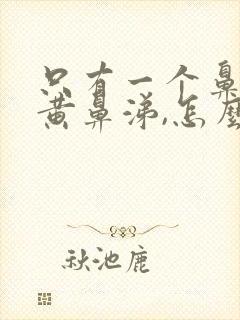 只有一个鼻
黄鼻涕,怎麽
秋池鹿